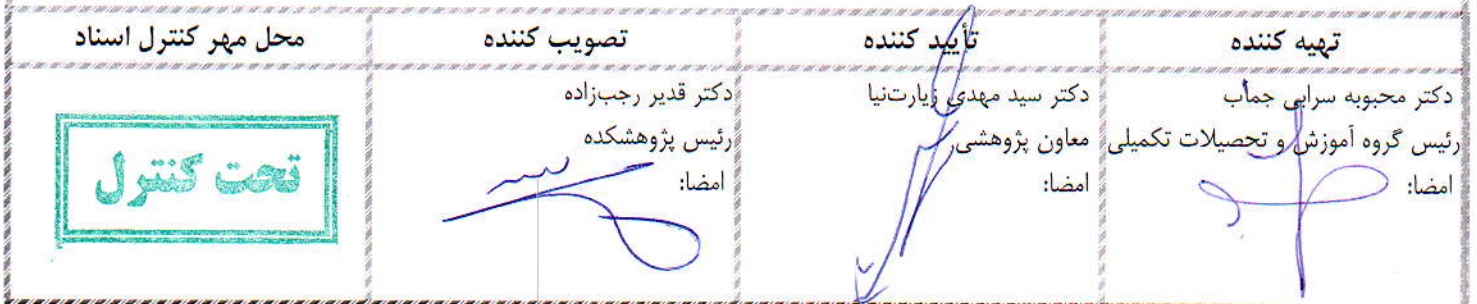 تهیه کننده
تأیید کننده
تصویب کننده
محل مهر کنترل اسناد
دکتر محبوبه سرابی جماب
رئیس گروه آموزش و تحصیلات تکمیلی
امضا:
دکتر سید مهدی زیارت‌نیا
معاون پژوهشی
امضا:
دکتر قدیر رجب‌زاده
رئیس پژوهشکده
امضا:
تحت کنترل